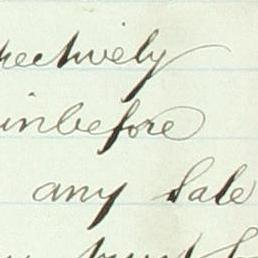 pectively
inbefore
any Sale